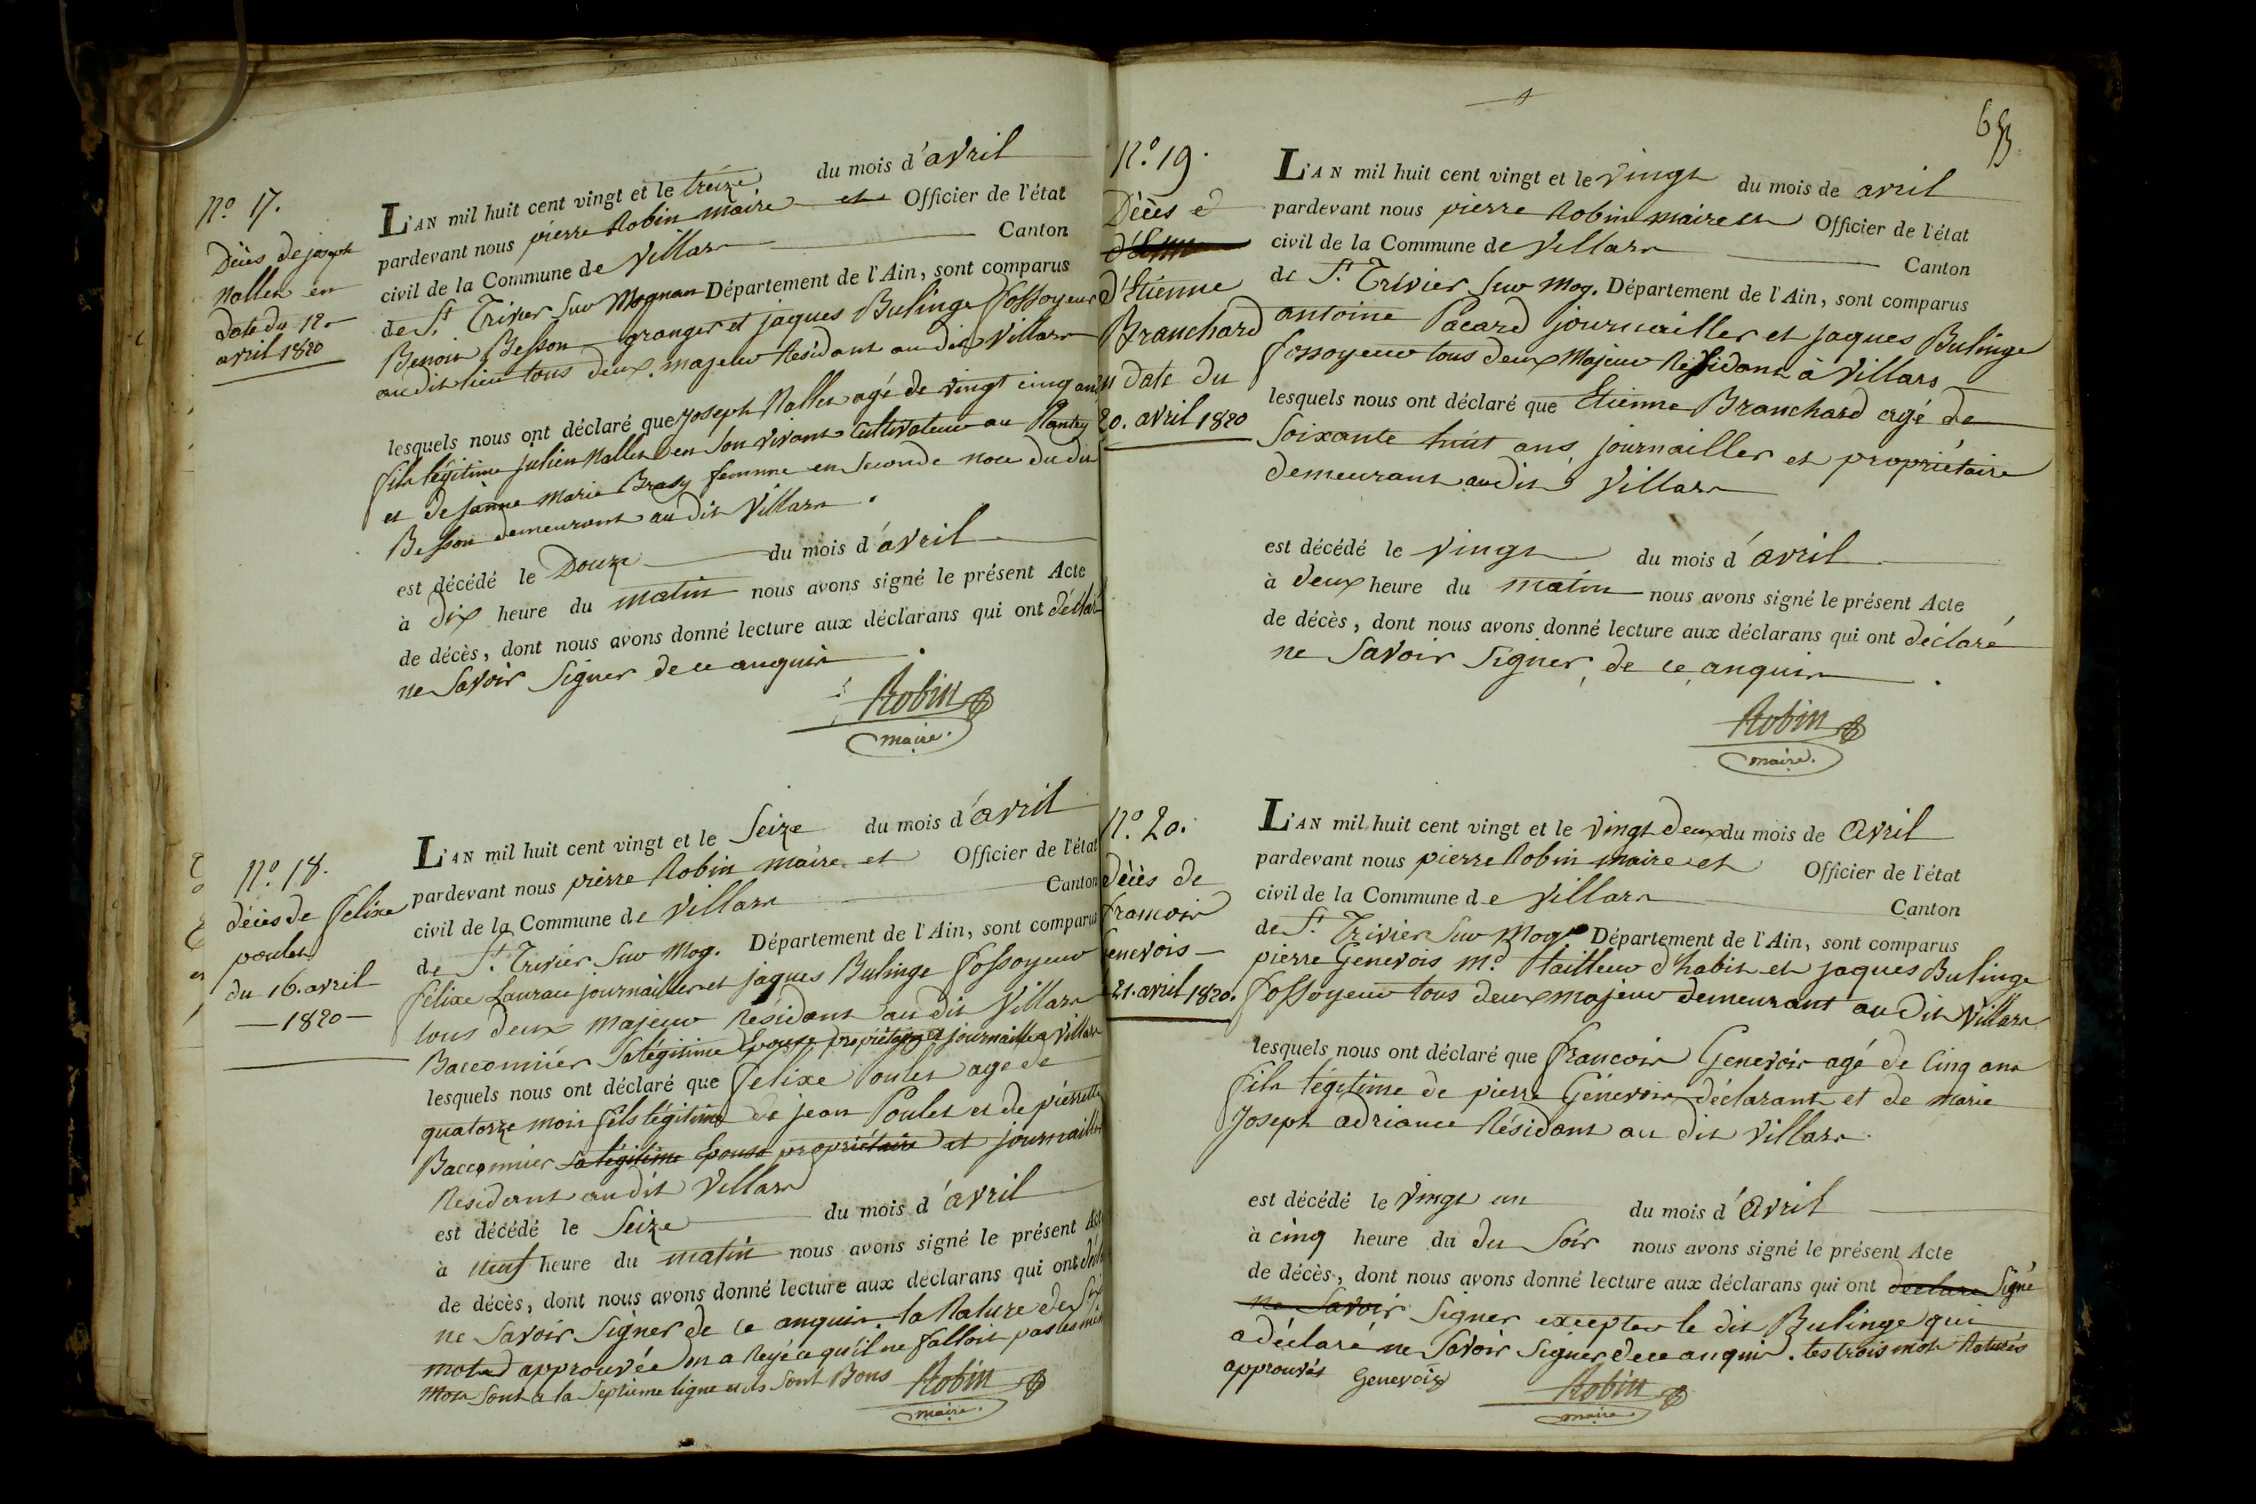 N.o 17.
Décès de joseph
Nallet en
date du 12
avril 1820
L'AN mil huit cent vingt et le treize du mois d'avril
pardevant nous pierre Robin maire et Officier de l'état
civil de la Commune de Villars Canton
de St. Trivier Sur Mognan Département de l'Ain, sont comparus
Benoit Besson granger et jaques Bulinge fossoyeur
audit lieu tous deux majeur Résidant au dit Villars
lesquels nous ont déclaré que joseph Nallet agé de vingt cinq ans
fils légitime julien Nallet en Son vivant Cultivateur au
et de janne marie Brasy femme en Seconde noce du dit
Besson demeurant au dit Villars.
est décédé le Douze du mois d'avril
à dix heure du matin nous avons signé le présent Acte
de décès, dont nous avons donné lecture aux déclarans qui ont déclaré
ne Savoir Signer de ce anquis.
Robin
maire.
N.o 18.
décès de felixe
poulet
du 16. avril
1820
L'AN mil huit cent vingt et le Seize du mois d'avril
pardevant nous pierre Robin maire et Officier de l'état
civil de la Commune de Villars Canton
de St. Trivier Sur Mog. Département de l'Ain, sont comparus
félixe journailler et jaques Bulinge fossoyeur
tous deux majeur Résidant au dit Villars
Bacconnier Sa légitime Epouse propriétaire et journaille a Villars
lesquels nous ont déclaré que felixe Poulet age de
quatorze mois fils légitime de jean Poulet et de pierrette
Bacconnier Sa légitime Epouse propriétaire et journailler
Residant au dit Villars
est décédé le Seize du mois d'avril
à neuf heure du matin nous avons signé le présent Acte
de décès, dont nous avons donné lecture aux déclarans qui ont
ne Savoir Signer de ce anquis. la Rature des Six
mots approuvée on a Reyé ce qu'il ne falloit pas les
mots sont a la Septieme ligne et ils Sont Bons
Robin
maire.
N.o 19.
Décès d
d'Etienne
Branchard
en date du
20. avril 1820
L'AN mil huit cent vingt et le vingt du mois de avril
pardevant nous pierre Robin maire et Officier de l'état
civil de la Commune de Villars Canton
de St. Trivier Sur Mog. Département de l'Ain, sont comparus
antoine Pacard journailler et jaques Bulinge
fossoyeur tous deux Majeur Residant à Villars
lesquels nous ont déclaré que Etienne Branchard agé de
Soixante huit ans, journailler et propriétaire
demeurant audit Villars
est décédé le vingt du mois d'avril
à deux heure du matin nous avons signé le présent Acte
de décès, dont nous avons donné lecture aux déclarans qui ont déclaré
ne Savoir Signer, de ce anquis.
Robin
maire.
N.o 20.
décès de
francois
Genevois
21. avril 1820.
L'AN mil huit cent vingt et le vingt deux du mois de avril
pardevant nous pierre Robin maire et Officier de l'état
civil de la Commune de Villars Canton
de St. Trivier Sur Mog. Département de l'Ain, sont comparus
pierre Genevois Md. tailleur d'habit et jaques Bulinge
fossoyeur tous deux majeur demeurant au dit Villars
lesquels nous ont déclaré que francois Genevois agé de Cinq ans
fils légitime de pierre Génevois déclarant et de marie
joseph adriance Résidant au dit Villars.
est décédé le vingt un du mois d'avril
à cinq heure du du Soir nous avons signé le présent Acte
de décès, dont nous avons donné lecture aux déclarans qui ont declare Signé
ne Savoir Signer excepter le dit Bulinge qui
a déclaré ne Savoir Signer de ce anquis. les trois mots Raturés
approuvés Genevois
Robin
maire.